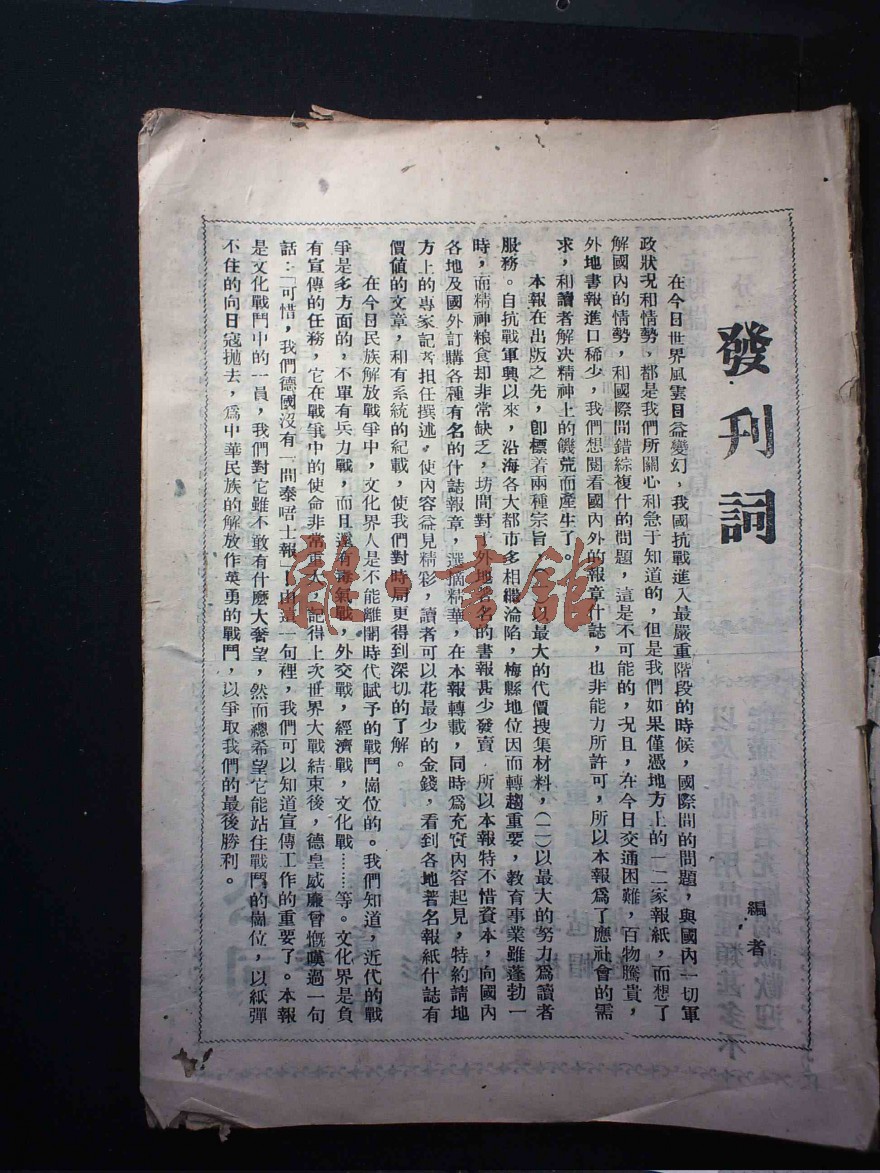 發刊詞
編者
在今日世界風雲日益變幻，我國抗戰進入最嚴重階段的時候，國際間的問題，與國內一切軍
政狀况和情勢，都是我們所關心和急于知道的，但是我們如果僅憑地方上的一二家報紙，而想了
解國內的情勢，和國際間錯綜複什的問題，這是不可能的，况且，在今日交通困難，百物騰貴，
外地書報進口稀少，我們想閱看國內外的報章什誌，也非能力所許可，所以本報爲了應社會的需
求，和讀者解决精神上的饑荒而產生了。
本報在出版之先，卽標着兩種宗旨，以最大的代價搜集材料，(二)以最大的努力爲讀者
服務。自抗戰軍興以來，沿海各大都市多相繼淪陷，梅縣地位因而轉趨重要，教育事業雖蓬勃一
時，而精神粮食却非常缺乏，坊間對于外地名名的書報甚少發賣，所以本報特不惜資本，向國內
各地及國外訂購各種有名的什誌報章，選摘精華，在本報轉載，同時爲充實內容起見，特約請地
方上的專家記者担任撰述，使內容益見精彩，讀者可以花最少的金錢，看到各地著名報紙什誌有
價値的文章，和有系統的紀載，使我們對時局更得到深切的了解。
在今日民族解放戰爭中，文化界人是不能離開時代賦予的戰鬥崗位的。我們知道，近代的戰
爭是多方面的，不單有兵力戰，而且還有毒氣戰，外交戰，經濟戰，文化戰……等。文化界是負
有宣傳的任務，它在戰爭中的使命非常重大，記得上次世界大戰結束後，德皇威廉曾慨嘆過一句
話：「可惜，我們德國沒有一間泰晤士報」！由這一句裡，我們可以知道宣傳工作的重要了。本報
是文化戰鬥中的一員，我們對它雖不敢有什麽大奢望，然而總希望它能站住戰鬥的崗位，以紙彈
不住的向日寇抛去，爲中華民族的解放作英勇的戰鬥，以爭取我們的最後勝利。
雜·書館